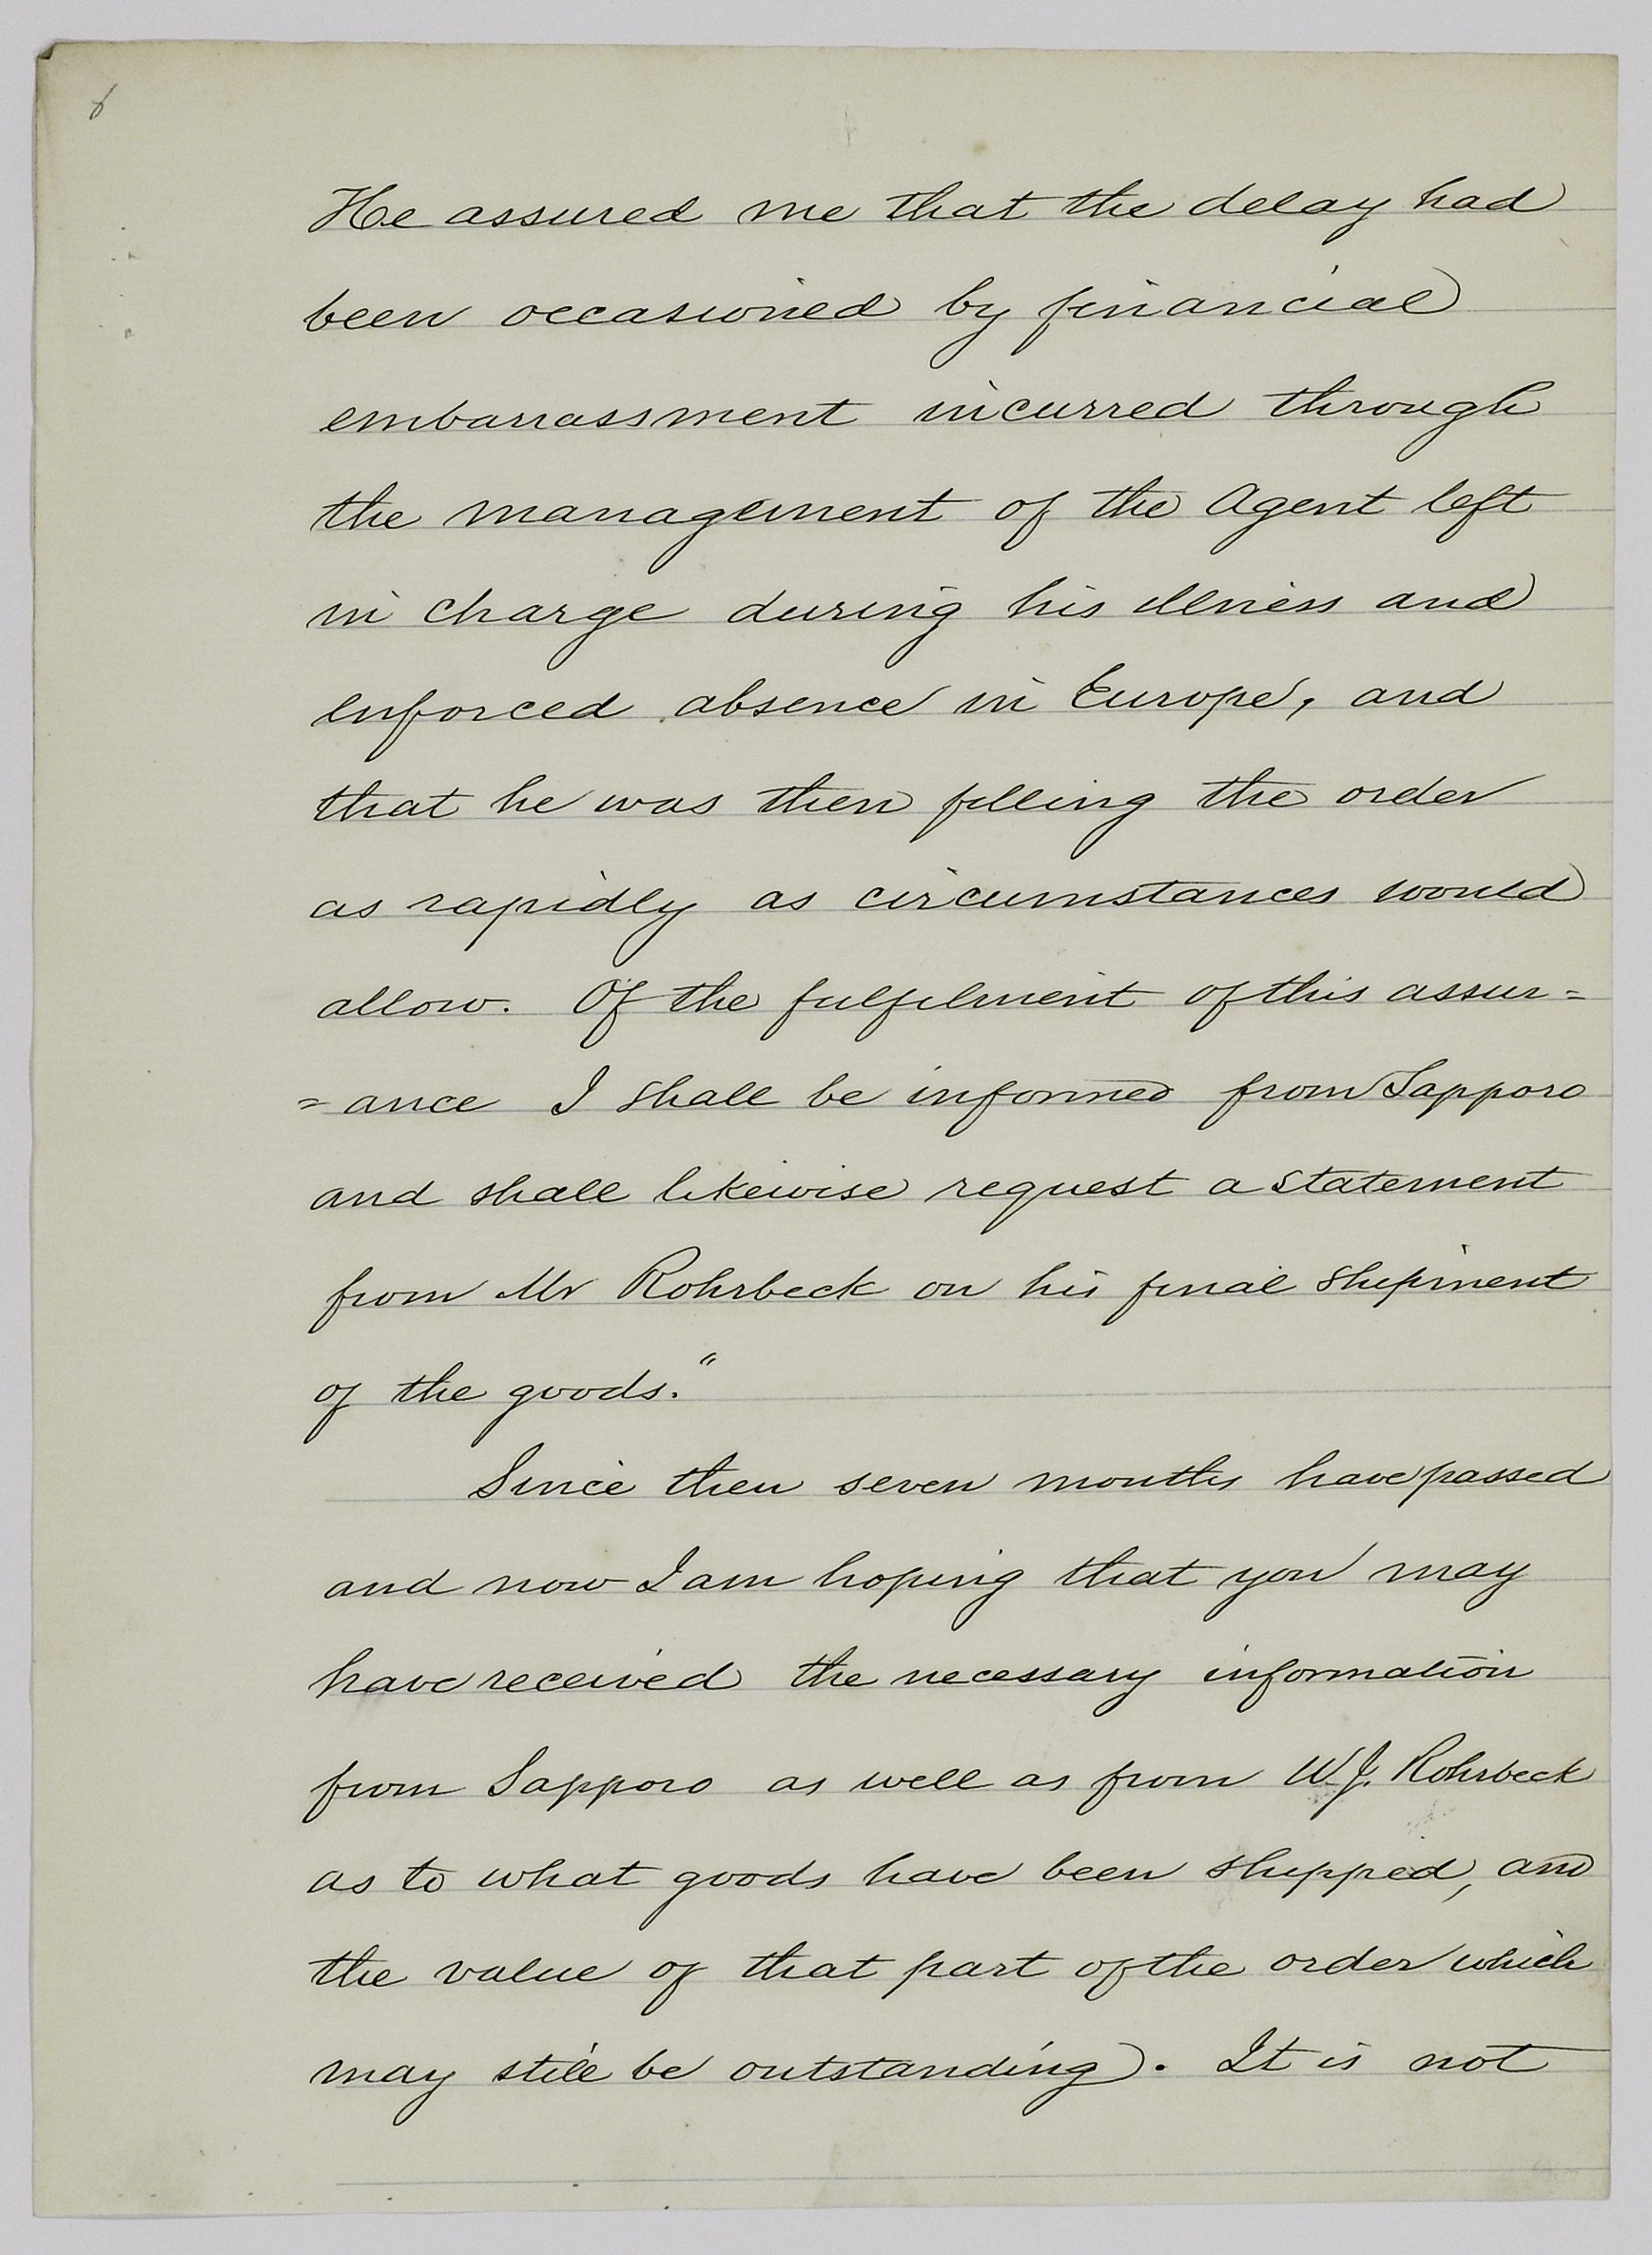 He assured me that the delay had
been occasioned by financial
embarrassment incurred through
the management of the Agent left
in charge during his illness and
enforced absence in Europe, and
that he was then filling the order
as rapidly as circumstances would
allow. Of the fulfilment of this assur=
=ance I shall be informed from Sapporo
and shall likewise request a statement
from Mr Rohrbeck on his final shipment
of the goods."
Since then seven months have passed
and now I am hoping that you may
have received the necessary information
from Sapporo as well as from W.J. Rohrbeck
as to what goods have been shipped, and
the value of that part of the order which
may still be outstanding. It is not